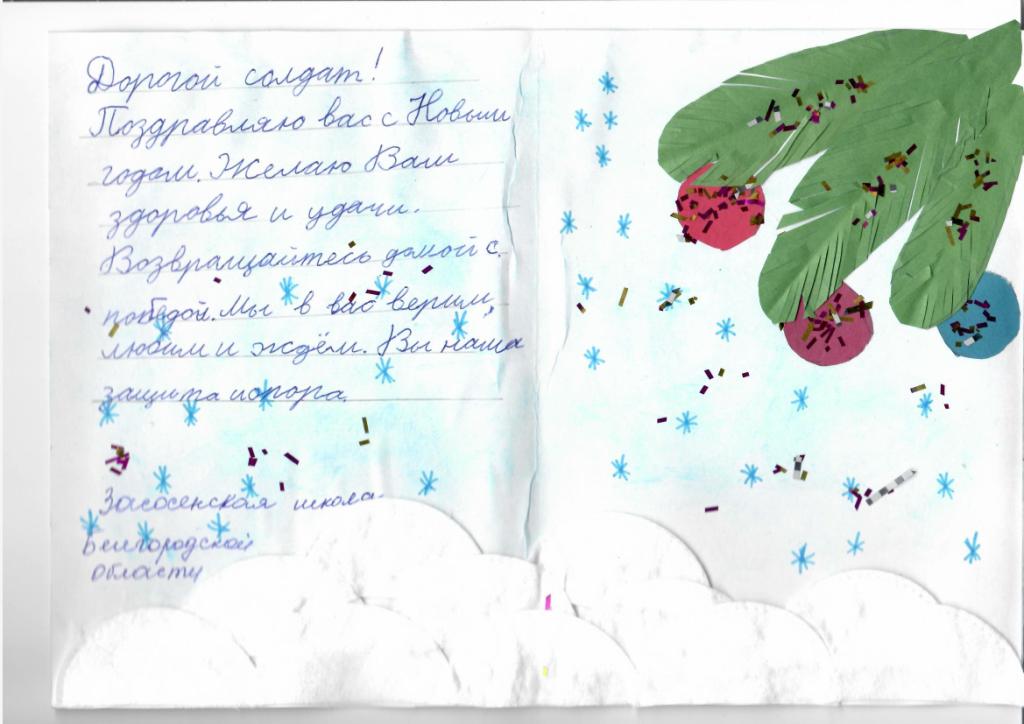 Дорогой солдат!
Поздравляю вас с Новым
годом. Желаю Вам
здоровья и удачи.
Возвращайтесь домой с
победой. Мы в вас верим,
любим и ждём. Вы наша
защита и опора.
Засосенская школа
Белгородской
области